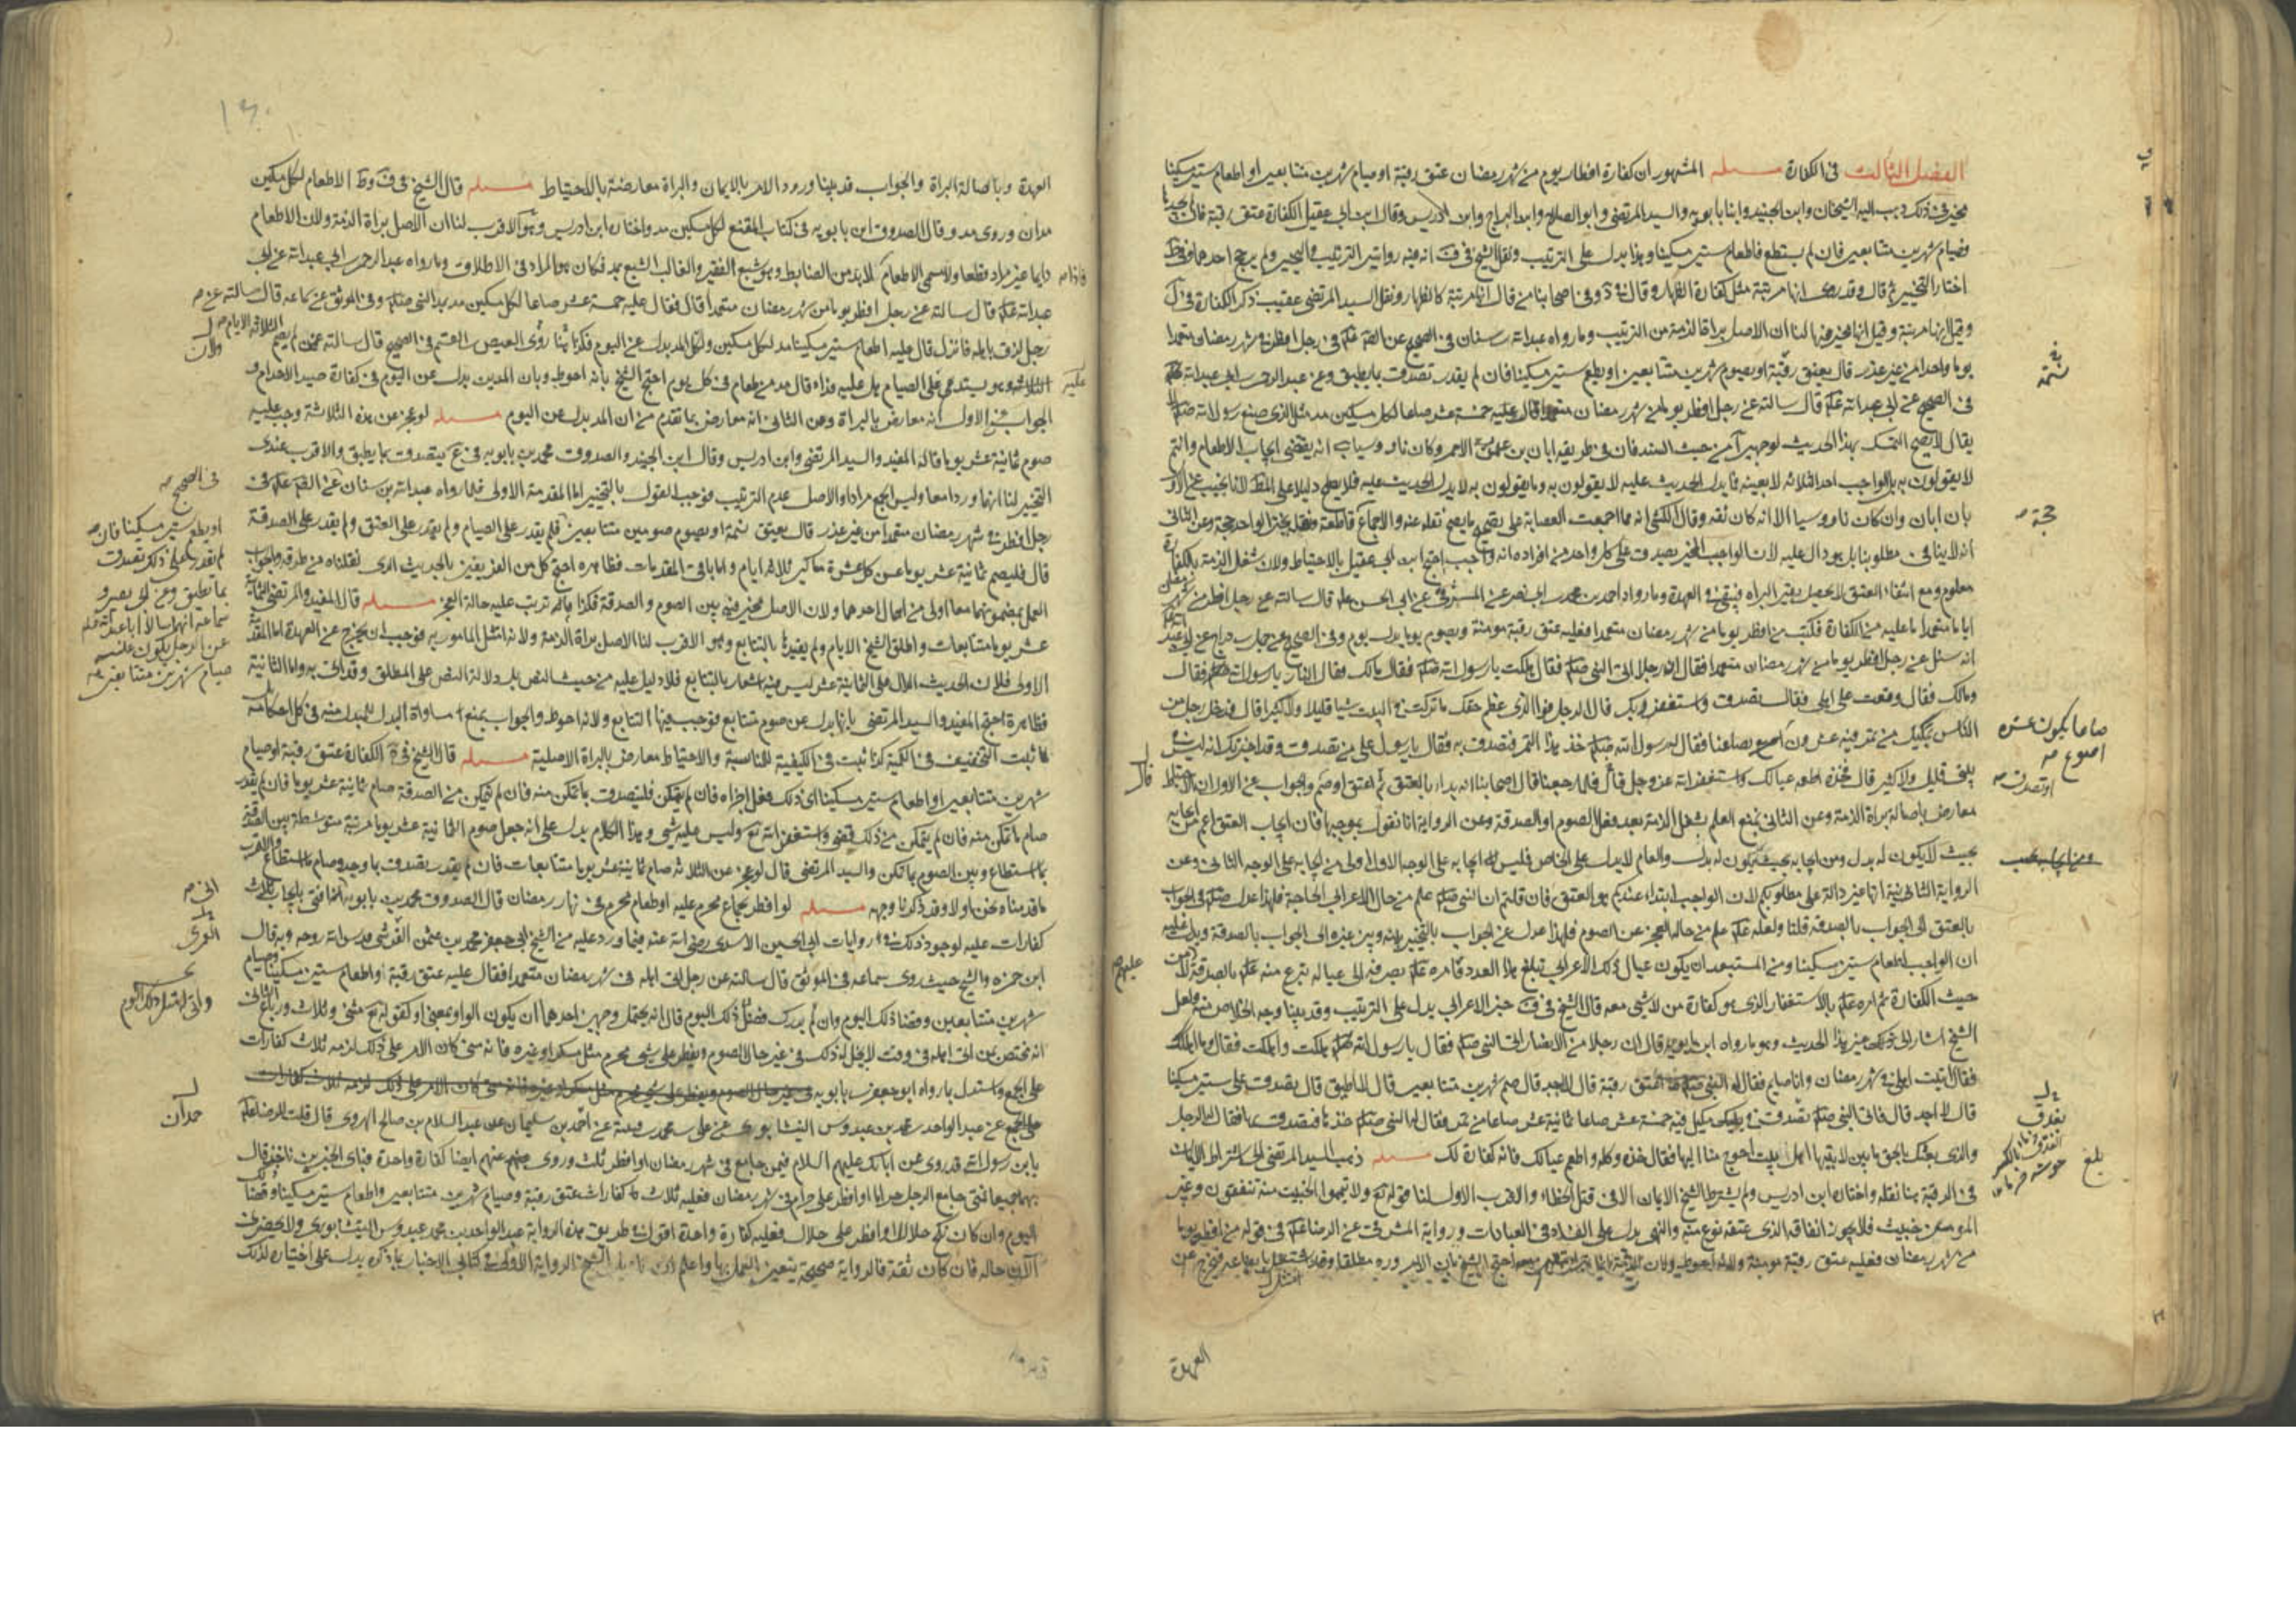 الفصل الثالث في الكفارة مسئله المشهور ان كفارة افطار يوم من شهر رمضان عتق رقبة او صيام شهرين متتابعين او اطعام ستين مسكينا
مخير في ذلك ذهب اليه الشيخان وابن الجنيد وابنا بابويه والسيد المرتضى وابو الصلاح وابن البراج وابن ادريس وقال ابن ابي عقيل الكفارة عتق رقبة فان لم يجدها
فصيام شهرين متتابعين فان لم يستطع فاطعام ستين مسكينا وهذا يدل على الترتيب ونقل الشيخ في ف انه فيه روايتين الترتيب والتخيير ولم يرجح احدهما وفي ط
اختار التخيير ثم قال وقد روى انها مرتبة مثل كفارة الظهار وقال في اصحابنا من قال انها مرتبة كالظهار ونقل السيد المرتضى عقيب ذكر الكفارة في
وقيل انها مرتبة وقيل انها مخير فيها لنا ان الاصل براءة الذمة من الترتيب وما رواه عبد الله بن سنان في الصحيح عن الصادق في رجل افطر في شهر رمضان متعمدا
يوما واحدا من غير عذر قال يعتق رقبة او يصوم شهرين متتابعين او يطعم ستين مسكينا فان لم يقدر تصدق بما يطيق وعن عبد الرحمن بن ابي عبد الله
في الصحيح عن ابي عبد الله قال سالته عن رجل افطر يوما من شهر رمضان متعمدا قال عليه خمسة عشر صاعا لكل مسكين مد مثل الذي صنع رسول الله
يقال لا يصح التمسك بهذا الحديث لوجهين من حيث السند فان في طريقه ابان بن عثمان الاحمر وكان ناووسيا انه يقتضي ايجاب الاطعام وانتم
لا يقولون به بل الواجب احد الثلاثة لا بعينه فما يدل الحديث عليه لا يقولون به وما يقولون به لا يدل الحديث عليه فلا يصح دليلا على المط لانا نجيب عن الاول
بان ابان وان كان ناووسيا الا انه كان ثقة وقال الكشي انه مما اجمعت العصابة على تصحيح ما يصح نقله عنه والاجماع قاطعة ونقله بخبر الواحد حجة وعن الثاني
انه لا ينافي مطلوبنا بل هو دال عليه لان الواجب المخير يصدق على كل واحد من افراده انه واجب احتج ابن ابي عقيل بالاحتياط ولان شغل الذمة بالكفارة
معلوم ومع انتفاء العتق لا يحصل يقين البراءة فيبقى في العهدة وما رواه احمد بن محمد بن ابي نصر عن المشرقي عن ابي الحسن قال سالته عن رجل افطر من شهر رمضان
اياما متعمدا ما عليه من الكفارة فكتب من افطر يوما من شهر رمضان متعمدا فعليه عتق رقبة مومنة ويصوم يوما بدل يوم وفي الصحيح عن جميل بن دراج عن ابي عبد
انه سئل عن رجل افطر يوما من شهر رمضان متعمدا فقال ان رجلا اتى النبي فقال هلكت يا رسول الله فقال مالك فقال النار يا رسول الله فقال
ومالك فقال وقعت على اهلي فقال تصدق واستغفر ربك قال الرجل فوالذي عظم حقك ما تركت في البيت شيا قليلا ولا كثيرا قال فدخل رجل من
الناس بمكيل من تمر فيه عشرون صاعا يكون عشرة اصوع بصاعنا فقال له رسول الله خذ هذا التمر فتصدق به فقال يا رسول على من تصدق وقد اخبرتك انه ليس في
بيتي قليل ولا كثير قال فخذه اطعمه عيالك واستغفر الله عز وجل قال فلما رجعنا قال اصحابنا انه بدا بالعتق قال اعتق او صم او تصدق والجواب عن الاول ان الاحتياط
معارض باصالة براءة الذمة وعن الثاني بمنع العلم بشغل الذمة بعد فعل الصوم او الصدقة وعن الرواية انا نقول بموجبها فان ايجاب العتق اعم من ايجابه
بحيث لا يكون له بدل ومن ايجابه بحيث يكون له بدل والعام لا يدل على الخاص فليس ايجابه على الوجه الاول اولى من ايجابه على الوجه الثاني وعن
الرواية الثانية انها غير دالة على مطلوبكم لان الواجب ابتداء عندكم هو العتق فان قلتم ان النبي علم من حال الاعرابي الحاجة فلهذا عدل في الجواب
بالعتق الى الجواب بالصدقة قلنا ولعله علم من حاله العجز عن الصوم فلهذا عدل عن الجواب بالتخيير بينه وبين غيره الى الجواب بالصدقة
ان الواجب اطعام ستين مسكينا ومن المستبعد ان يكون عيال ذلك الاعرابي تبلغ هذا العدد فامره بصرفه الى عياله تبرع منه بالصدقة
حيث الكفارة ثم امره بالاستغفار الذي هو كفارة من لا شي معه قال الشيخ في ف خبر الاعرابي يدل على الترتيب وقد بينا وجه الخلاص منه ولعل
الشيخ اشار الى غير هذا الحديث وهو ما رواه ابن بابويه قال ان رجلا من الانصار اتى النبي فقال يا رسول الله هلكت واهلكت فقال ما اهلكك
فقال اتيت اهلي في شهر رمضان وانا صايم فقال له النبي اعتق رقبة قال لا اجد قال صم شهرين متتابعين قال لا اطيق قال تصدق على ستين مسكينا
قال لا اجد قال فاتى النبي بعذق في مكيل فيه خمسة عشر صاعا من تمر فقال له النبي خذ هذا فتصدق بها فقال له الرجل
والذي بعثك بالحق ما بين لابتيها اهل بيت احوج منا اليها فقال خذه وكله واطعم عيالك فانه كفارة لك مسئله ذهب السيد المرتضى الى اشتراط الايمان
في الرقبة هنا نقله واختاره ابن ادريس ولم يشترط الشيخ الايمان الا في قتل الخطاء والاقرب الاول لنا قوله تع ولا تيمموا الخبيث منه تنفقون وغير
المومن خبيث فلا يجوز انفاقه الذي عتقه نوع منه والنهي يدل على الفساد في العبادات ورواية المشرقي عن الرضا في قوله من افطر يوما
من شهر رمضان فعليه عتق رقبة مومنة ولانه احوط ولان الذمة احتج الشيخ بان الامر ورد مطلقا
العهدة
العهدة وباصالة البراة والجواب قد بينا ورود الامر بالايمان والبراة معارضة بالاحتياط مسئله قال الشيخ في ف وط الاطعام لكل مسكين
مدان وروى مد وقال الصدوق ابن بابويه في كتاب المقنع لكل مسكين مد واختاره ابن ادريس وهو الاقرب لنا ان الاصل براة الذمة ولان الاطعام
دايما غير مراد قطعا ولا مسمى الاطعام فاذا لا بد من الضابط وهو شبع الفقير والغالب الشبع بمد فكان هو المراد في الاطلاق وما رواه عبد الرحمن بن ابي عبد الله عن ابي
عبد الله قال سالته عن رجل افطر يوما من شهر رمضان متعمدا قال فقال عليه خمسة عشر صاعا لكل مسكين مد بمد النبي وفي الموثق عن سماعه قال سالته عن
رجل لزق باهله فانزل قال عليه اطعام ستين مسكينا مد لكل مسكين ولان المد بدل عن اليوم فكذا هنا روى العيص بن القسم في الصحيح قال سالته عمن لم يصم الثلاثة الايام
وهو يستد عليه الصيام هل عليه فداء قال مد من طعام في كل يوم احتج الشيخ بانه احوط وبان المدين بدل عن اليوم في كفارة صيد الاحرام و
الجواب عن الاول انه معارض بالبراة وعن الثاني انه معارض بما تقدم من ان المد بدل عن اليوم مسئله لو عجز عن هذه الثلاثة وجب عليه
صوم ثمانية عشر يوما قاله المفيد والسيد المرتضى وابن ادريس وقال ابن الجنيد والصدوق محمد بن بابويه في يتصدق بما يطيق والاقرب عندي
التخيير لنا انهما وردا معا وليس الجمع مرادا والاصل عدم الترتيب فوجب القول بالتخيير اما المقدمة الاولى فلما رواه عبد الله بن سنان في الصحيح عن الصادق في
رجل افطر في شهر رمضان متعمدا من غير عذر قال يعتق نسمة او يصوم صومين متتابعين فلم يقدر على الصيام ولم يقدر على العتق ولم يقدر على الصدقة
قال فليصم ثمانية عشر يوما عن كل عشرة مساكين ثلاثة ايام واما باقي المقدمات فظاهره احتج كل من الفريقين بالحديث الذي نقلناه من طرقه والجواب
العمل بمضمونهما معا اولى من اهمال احدهما ولان الاصل مخير فيه بين الصوم والصدقة فكذا ما ترتب عليه حالة العجز مسئله قال المفيد والمرتضى ثمانية
عشر يوما متتابعات واطلق الشيخ الايام ولم يقيدها بالتتابع وهو الاقرب لنا الاصل براة الذمة ولانه امتثل المامور به فوجب ان يخرج عن العهدة اما المقدمة
الاولى فلان الحديث الدال على الثمانية عشر ليس فيه اشعار بالتتابع فلا دليل عليه من حيث النص بل دلالة النص على المطلق وقد اتى به واما الثانية
فظاهرة احتج المفيد والسيد المرتضى بانها بدل عن صوم متتابع فوجب فيها التتابع ولانه احوط والجواب بمنع مساواة البدل للمبدل منه في كل احكامه بل
كما ثبت التخفيف في الكمية كذا ثبت في الكيفية للمناسبة والاحتياط معارض بالبراة الاصلية مسئله قال الشيخ في الكفارة عتق رقبة او صيام
شهرين متتابعين او اطعام ستين مسكينا اي ذلك فعل اجزاه فان لم يتمكن فليتصدق بما تمكن منه فان لم يتمكن من الصدقة صام ثمانية عشر يوما فان لم يقدر
صام ما تمكن منه فان لم يتمكن من ذلك قضى واستغفر الله تع وليس عليه شي وهذا الكلام يدل على انه جعل صوم الثمانية عشر يوما مرتبة متوسطة بين الصدقة
بما استطاع وبين الصوم بما تمكن والسيد المرتضى قال لو عجز عن الثلاثة صام ثمانية عشر يوما متتابعات فان لم يقدر تصدق بما وجد وصام ما استطاع والاقرب
ما قدمناه نحن اولا وقد ذكرنا وجهه مسئله لو افطر بجماع محرم عليه او طعام محرم في نهار رمضان قال الصدوق محمد بن بابويه انا افتي بايجاب ثلاث
كفارات عليه لوجود ذلك في روايات ابي الحسين الاسدي رضي الله عنه فيما ورد عليه من الشيخ ابي جعفر محمد بن عثمن العمري قدس الله روحه وبه قال
ابن حمزه والشيخ حيث روى سماعه في الموثق قال سالته عن رجل اتى اهله في شهر رمضان متعمدا فقال عليه عتق رقبة او اطعام ستين مسكينا وصيام
شهرين متتابعين وقضا ذلك اليوم وان لم يدرك فضل ذلك اليوم قال انه يحتمل وجهين احدهما ان يكون الواو بمعنى او كقوله تع مثنى وثلاث ورباع الثاني
انه مختص بمن اتى اهله في وقت لا يحل له ذلك في غير حال الصوم ويفطر على شي محرم مثل مسكر او غيره فانه متى كان الامر على ذلك لزمه ثلاث كفارات
على الجمع واستدل بما رواه ابو جعفر بن بابويه
عن عبد الواحد بن محمد بن عبدوس النيشابوري عن علي بن محمد بن قتيبة عن حمدان بن سليمان عن عبد السلام بن صالح الهروي قال قلت للرضا
يا بن رسول الله قد روى عن ابائك عليهم السلام فيمن جامع في شهر رمضان او افطر ثلث وروى عنهم ايضا كفارة واحدة فباي الخبرين ناخذ قال
بهما جميعا متى جامع الرجل حراما او افطر على حرام في شهر رمضان فعليه ثلاث كفارات عتق رقبة وصيام شهرين متتابعين واطعام ستين مسكينا وقضا ذلك
اليوم وان كان نكح حلالا او افطر على حلال فعليه كفارة واحدة اقول في طريق هذه الرواية عبد الواحد بن محمد بن عبدوس النيشابوري ولا يحضرني
الان حاله فان كان ثقة فالرواية صحيحة يتعين العمل بها